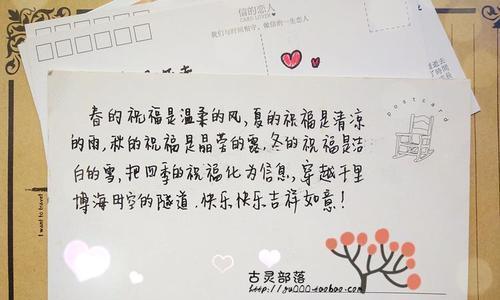 信的恋人
CARD LOVER
我们与时间相守，做信的一生恋人
postcard
春的祝福是温柔的风,夏的祝福是清凉
的雨,秋的祝福是晶莹的露,冬的祝福是洁
白的雪,把四季的祝福化为信息,穿越千里
博海时空的隧道.快乐快乐吉祥如意!
I want to travel
古灵部落